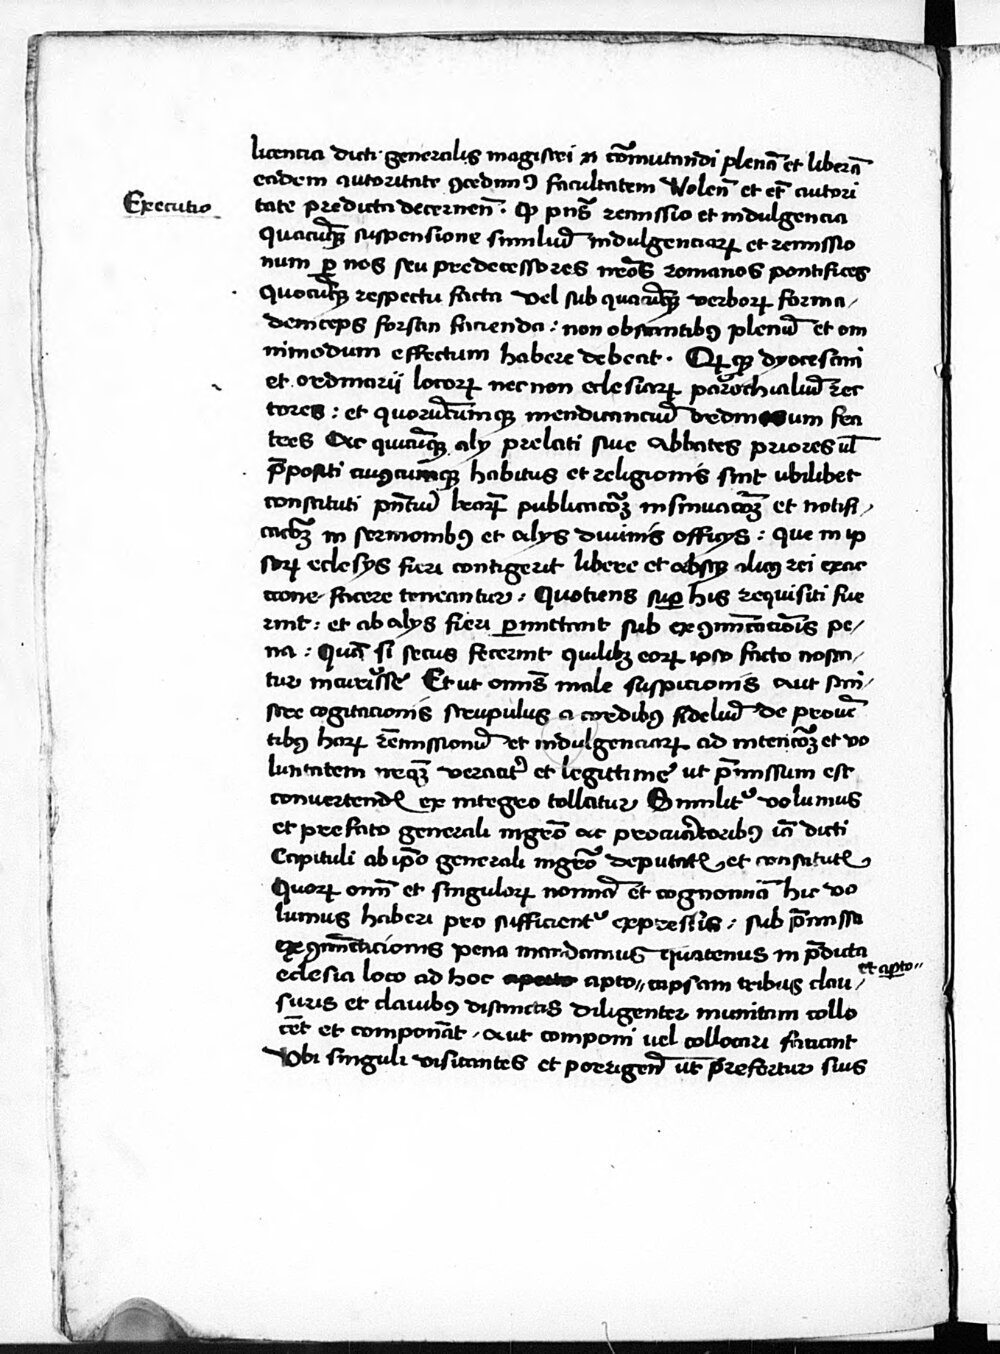 licencia dicti generalis magistri ac co̅mutandi plena̅ et libera̅
eadem autoritate ꝯcedimꝰ facultatem Volen̅ et et̅ autori
Executio
tate predicta decernen̅. Qꝫ pn̅s remissio et indulgencia
quacu̅qꝫ suspensione similiu̅ indulgenciaꝝ et remissio
num ꝑ nos seu predecessores nr̅os romanos pontifices
quocu̅qꝫ respectu facta vel sub quaru̅qꝫ verboꝝ forma/
deinceps forsan facienda: non obstantibꝰ plenu̅ et om
nimodum effectum habere debeat. Qꝫ dyocesani
et ordinarij locoꝝ nec non ecclesiaꝝ parrochialiu̅ rec
tores: et quorumcumqꝫ mendicanciu̅ ordinum fra
tres Ac quicu̅qꝫ aly prelati siue abbates priores ul̅
p̅positi cuiuscumqꝫ habitus et religionis sint ubilibet
constituti pn̅tiu̅ lr̅aꝝ publicaco̅ꝫ insinuaco̅ꝫ et notifi/
caco̅ꝫ in sermonibꝰ et alys diuinis officys: que in ip
soꝝ eclesys fieri contigerit libere et absqꝫ alicꝰ rei exac
cione facere teneantur: Quotiens suꝑ his requisiti fue
rint: et ab alys fieri ꝑmittant sub exꝯmu̅icacio̅is pe/
na: Qua̅ si secus fecerint quilibꝫ eoꝝ ipso facto nosca/
tur incurisse Et ut omis̅ male suspicionis aut sini/
stre cogitacionis scrupulus a cordibꝰ fideliu̅ de proue̅
tibꝰ haꝝ remissionu̅ et indulgenciaꝝ ad intenco̅ꝫ et vo
luntatem neqꝫ veracit̅ et legittime ut p̅missum est
convertend̅ ex integro tollatur Similitꝰ volumus
et prefato generali mgr̅o ac procuratoribꝰ ia̅ dicti
Capituli ab ip̅o generali mgr̅o deputatꝭ et constitutꝭ
Quoꝝ om̅ et singuloꝝ nomina̅ et cognomina̅ hic vo
lumus haberi pro sufficientꝰ expressis: sub p̅missa
exꝯmu̅icacionis pena mandamus quatenus in p̅dicta
eclesia loco ad hoc apto// capsam tribus clau/ et apto//
suris et clauibꝰ distinctis diligenter munitam collo
ce̅t et compona̅t / aut componi uel collocari faciant
Vbi singuli visitantes et porrigen̅ ut p̅refertur suis